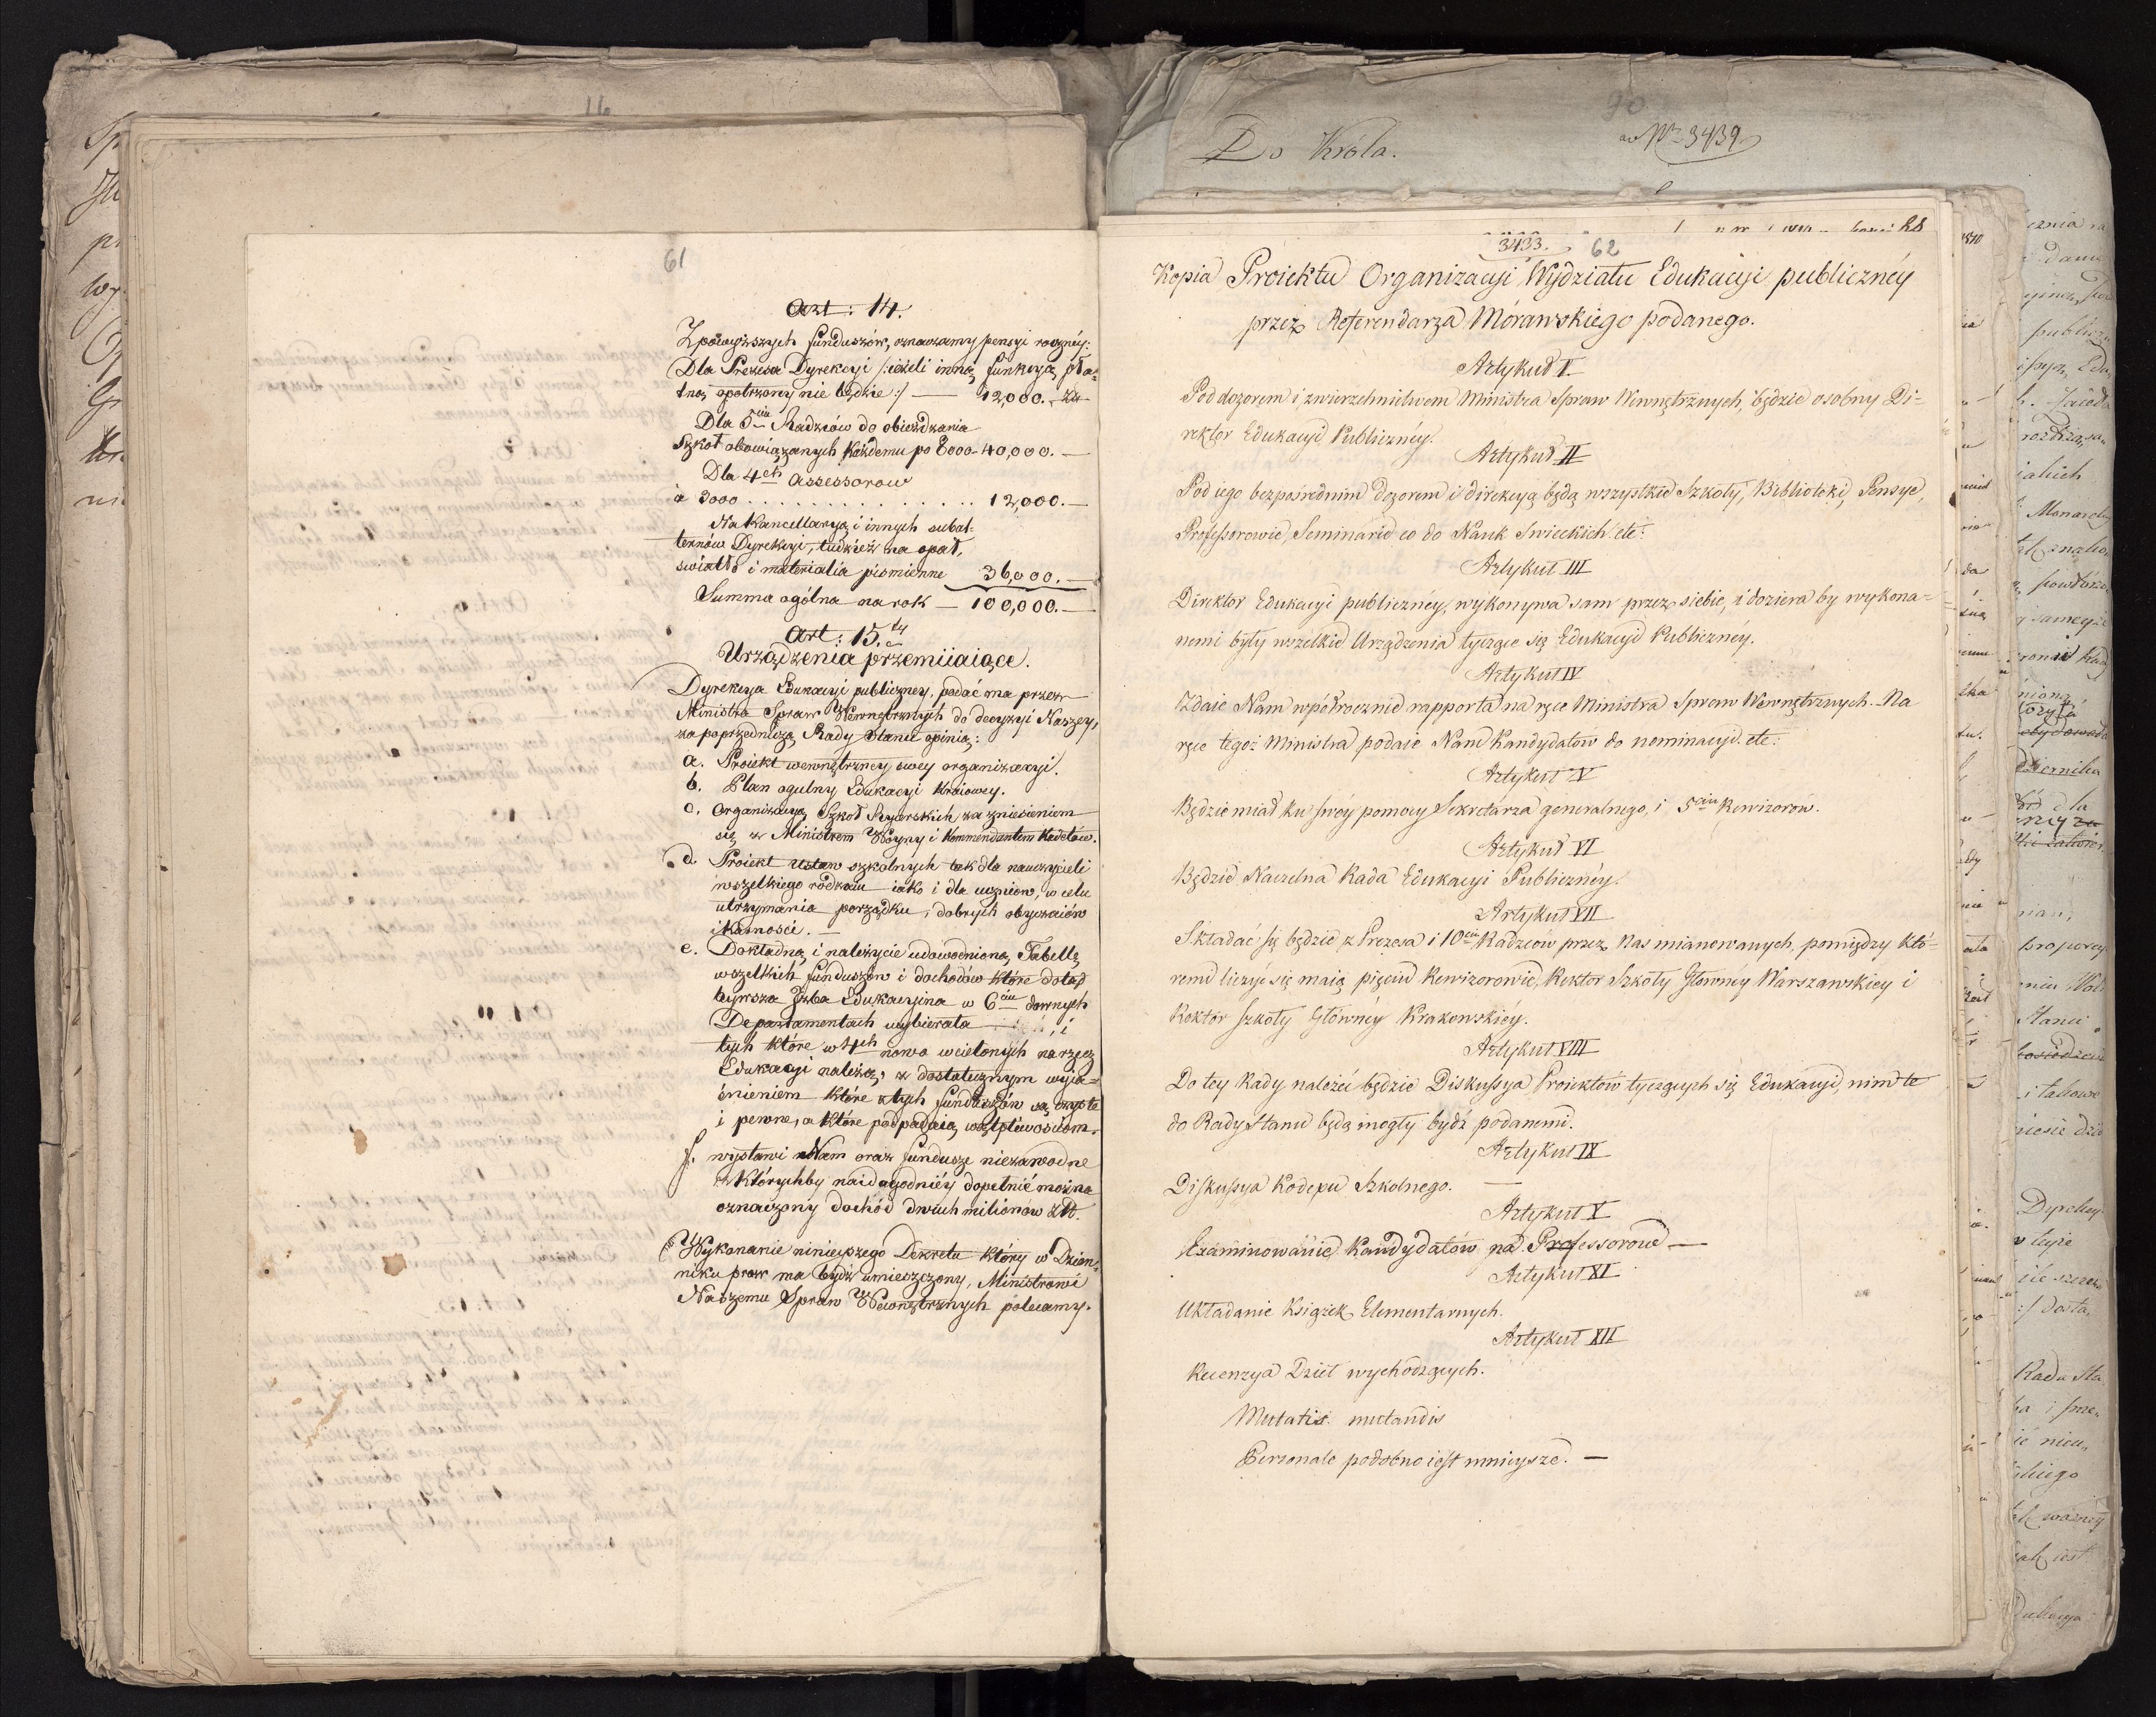 16
61
Art: 14.
Z powyższych funduszów, oznaczamy pensyi roczney:
Dla Prezesa Dyrekcyi /:ieżeli inną funkcyą pła=
tną opatrzony nie będzie:/ — 12,000. Zł
Dla 5ciu Radzców do obieżdzania
Szkół obowiązanych każdemu po 8000 - 40,000. —
Dla 4ech Assessorow
à 3000 . . . . . . . . . . . . . . 12,000. —
Na Kancellaryą i innych subal-
ternów Dyrekcyi, tudzież na opał,
swiatło i materialia piśmienne 36,000. —
Summa ogólna na rok — 100,000. —
Art: 15.ty
Urządzenia przemiiaiące.
Dyrekcya Edukacyi publiczney, podać ma przez
Ministra Spraw Wewnętrznych do decyzyi Naszey,
za poprzedniczą Rady Stanu opinią:
a. Proiekt wewnętrzney swey organizacyi.
b. Plan ogulny Edukacyi Kraiowey.
c. Organizacyą Szkoł Rycerskich za zniesieniem
się z Ministrem Woyny i Kommendantem Kadetów.
d. Proiekt Ustaw szkolnych tak dla nauczycieli
wszelkiego rodzaiu iako i dla uczniow, w celu
utrzymania porządku, dobrych obyczaiów
i karności. —
e. Dokładną, i należycie udowodnioną Tabellę
wszelkich funduszów i dochodów które dotąd
bywsza Izba Edukacyina w 6ciu dawnych
Departamentach wybierała , i
tych które w 4ech nowo wcielonych na rzecz
Edukacyi należą, z dostatecznym wyia=
śnieniem które z tych funduszów są czyste
i pewne, a które podpadaią wątpliwościom.
f. wystawi Nam oraz fundusze niezawodne
z którychby naidogodniéy dopełnić można
oznaczony dochód dwuch milionów Złt.
Wykonanie ninieyszego Dekretu który w Dzien=
niku praw ma bydź umieszczony, Ministrowi
Naszemu Spraw Wewnętrznych polecamy.
90
ad Nro 3439.
Do Króla.
3433. 62
Kopia Proiektu Organizacyi Wydziału Edukacyi publicznéy
przez Referendarza Mórawskiego podanego.
Artykuł I
Pod dozorem i zwierzchnictwem Ministra Spraw Wewnętrznych, będzie osobny Di=
rektor Edukacyi Publicznéy.
Artykuł II
Pod iego bezpośrednim dozorem i direkcyą będą wszystkie Szkoły, Biblioteki, Pensye,
Professorowie, Seminaria co do Nauk Swieckich etc:
Artykuł III
Direktor Edukacyi publicznéy, wykonywa sam przez siebie, i doziera by wykona=
nemi były wszelkie Urządzenia tyczące się Edukacyi Publicznéy.
Artykuł IV
Zdaie Nam wpółrocznie rapporta na ręce Ministra Spraw Wewnętrznych. Na
ręce tegoż Ministra podaie Nam Kandydatów do nominacyi etc:
Artykuł V
Będzie miał ku swéy pomocy Sekretarza generalnego, i 5ciu Rewizorów.
Artykuł VI
Będzie Naczelna Rada Edukacyi Publicznéy.
Artykuł VII
Składać się będzie z Prezesa i 10ciu Radzców przez Nas mianowanych, pomiędzy któ=
remi liczyć się maią pięciu Rewizorowie, Rektor Szkoły Główney Warszawskiey i
Rektor Szkoły Głównéy Krakowskiéy.
Artykuł VIII
Do tey Rady należeć będzie Diskussya Proiektów tyczących się Edukacyi, nim te
do Rady Stanu będą mogły bydź podanemi.
Artykuł IX
Diskussya Kodexu Szkolnego. —
Artykuł X
Examinowanie Kandydatów na Professorow —
Artykuł XI
Układanie Książek Elementarnych.
Artykuł XII
Recenzya Dzieł wychodzących.
Mutatis mutandis
Personale podobno iest mnieysze. —